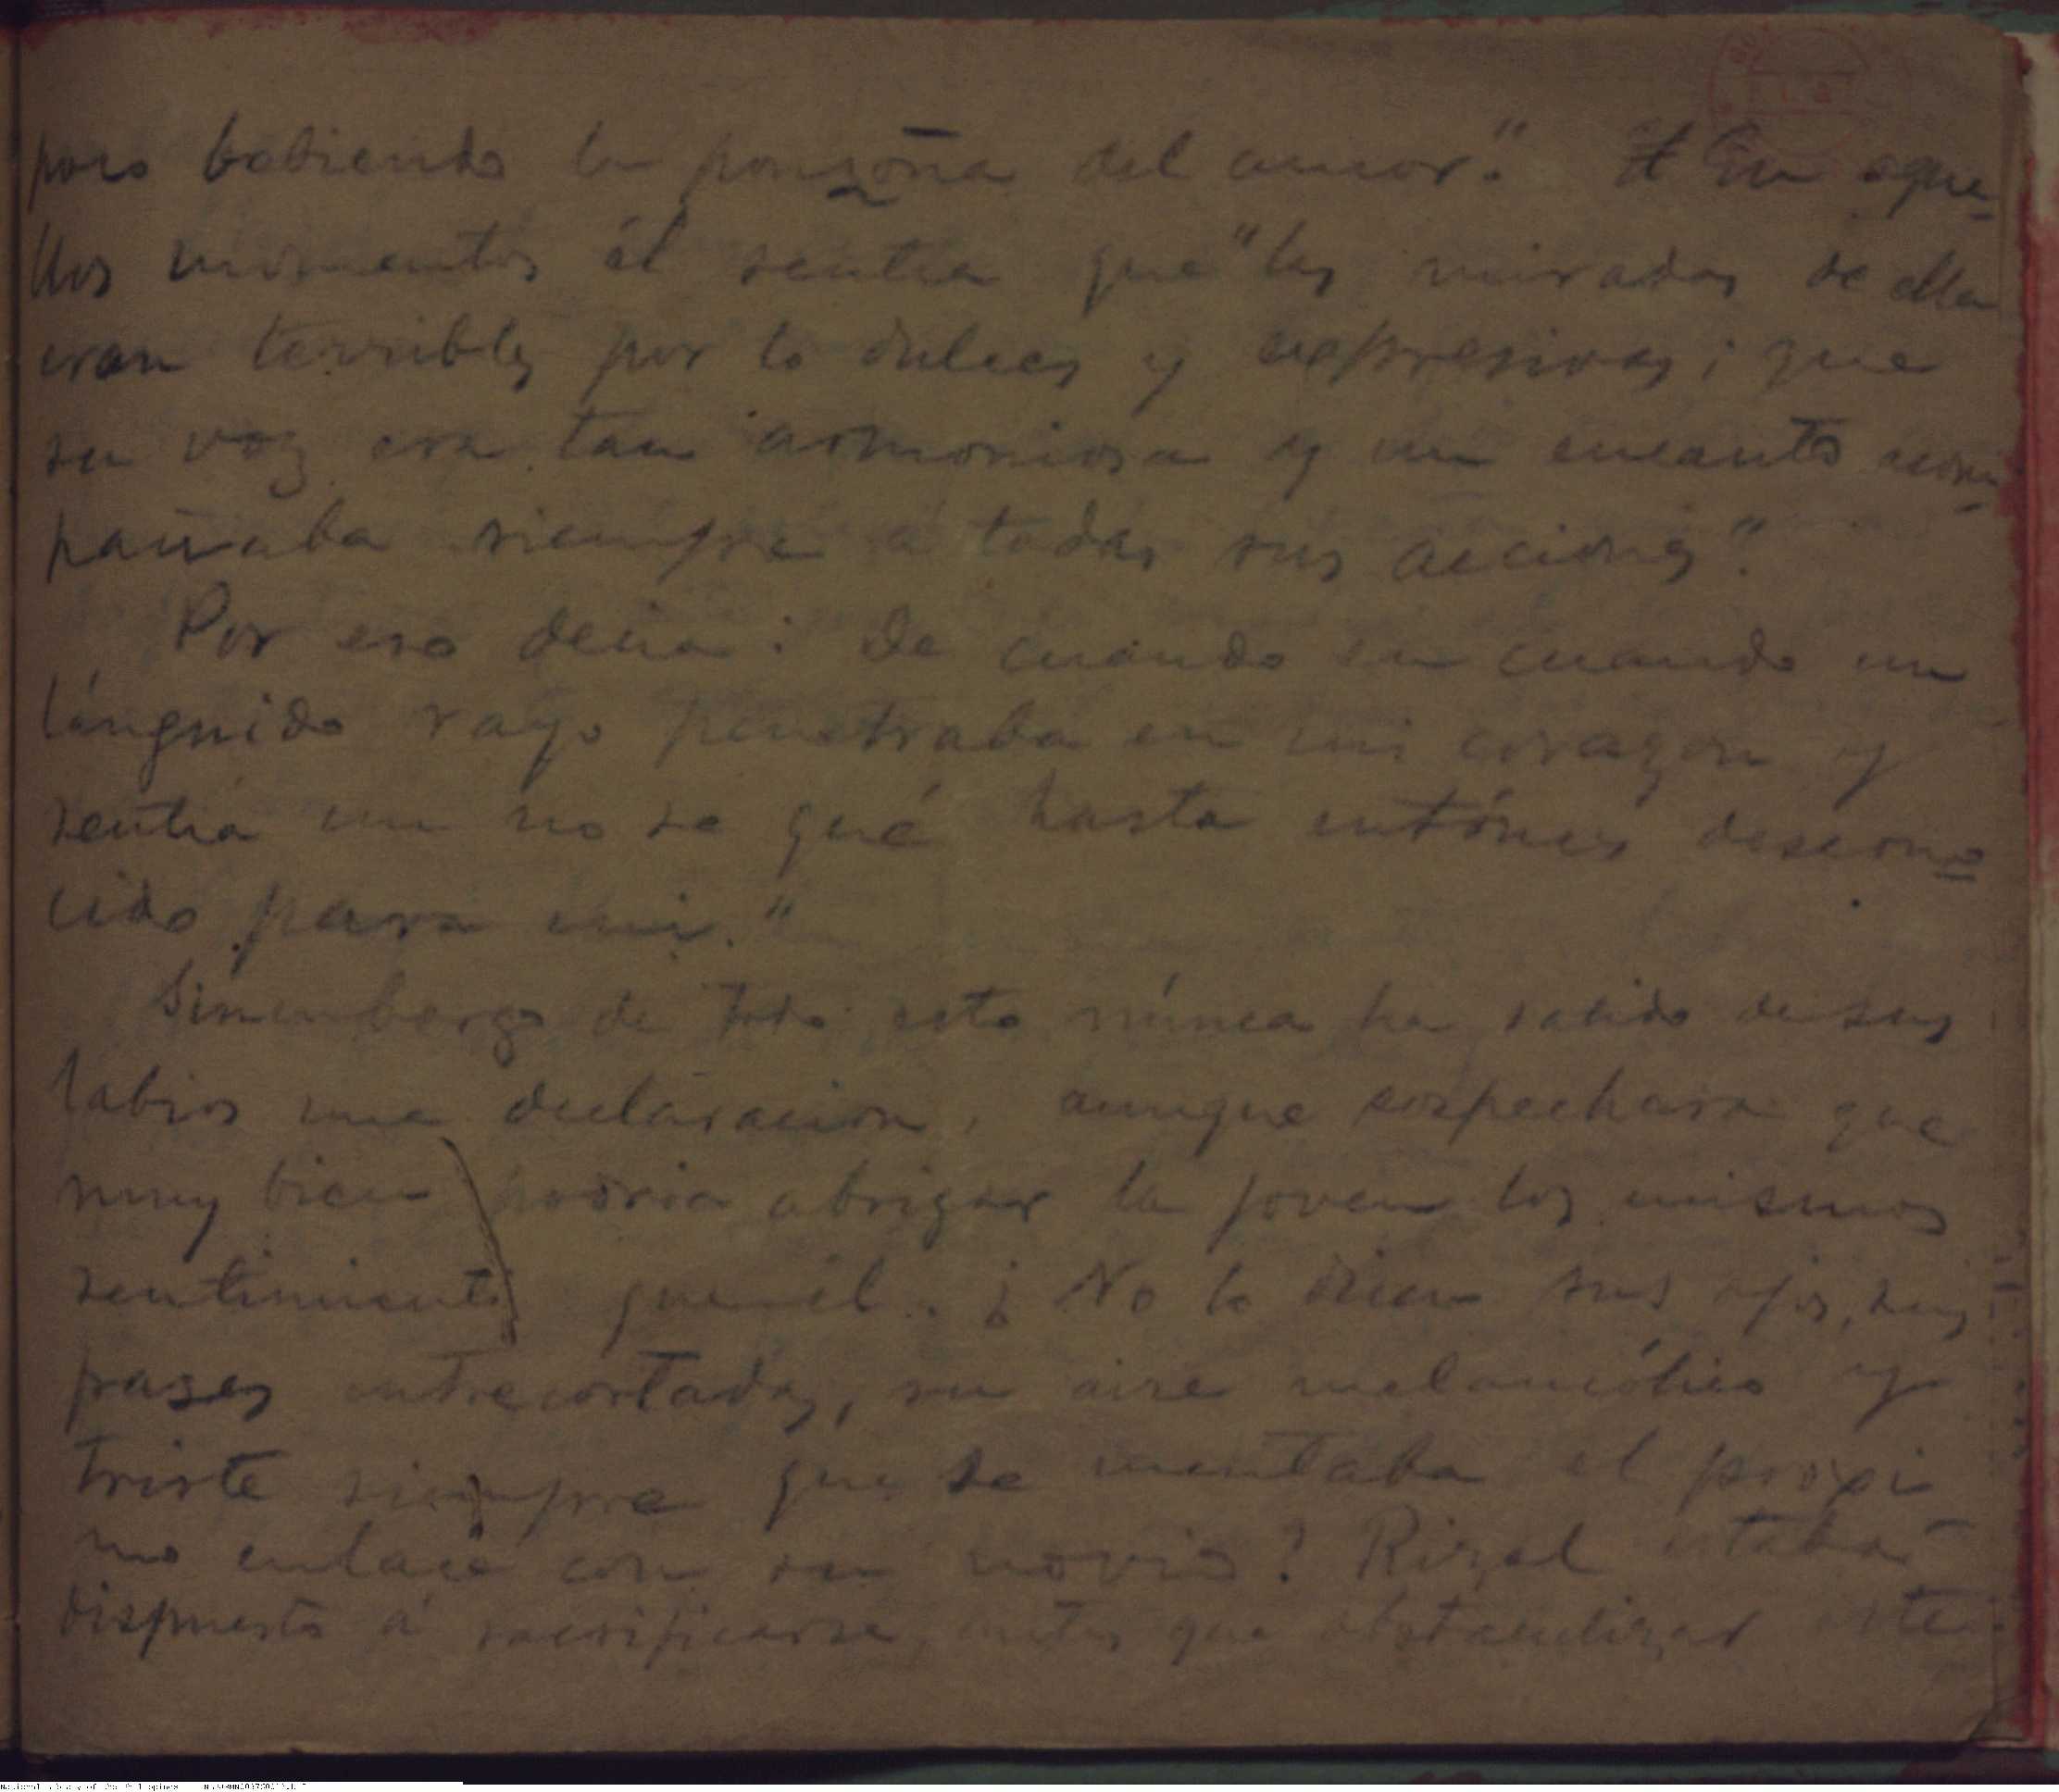 poco bebiendo la ponzoña del amor." En aque-
llos momentos él sentia que "las miradas de ella
eran terribles por lo dulces y expresivas; que
su voz era tan armoniosa y un encanto acom-
pañaba siempre á todas sus acciones".
Por eso decia: De cuando en cuando un
lánguido rayo penetraba en mi corazon y
sentia un no se qué hasta entónces descono-
cido para mi."
Sinembargo de todo esto núnca ha salido de sus
labios una declaracion, aunque sospechara que
muy bien podria abrigar la joven los mismos
sentimientos que él. ¿No lo dicen sus ojos, sus
frases entrecortadas, su aire melancólico y
triste siempre que se mentaba el próxi
mo enlace con su novio? Rizal estaba
dispuesto á sacrificarse, antes que obstaculizar este